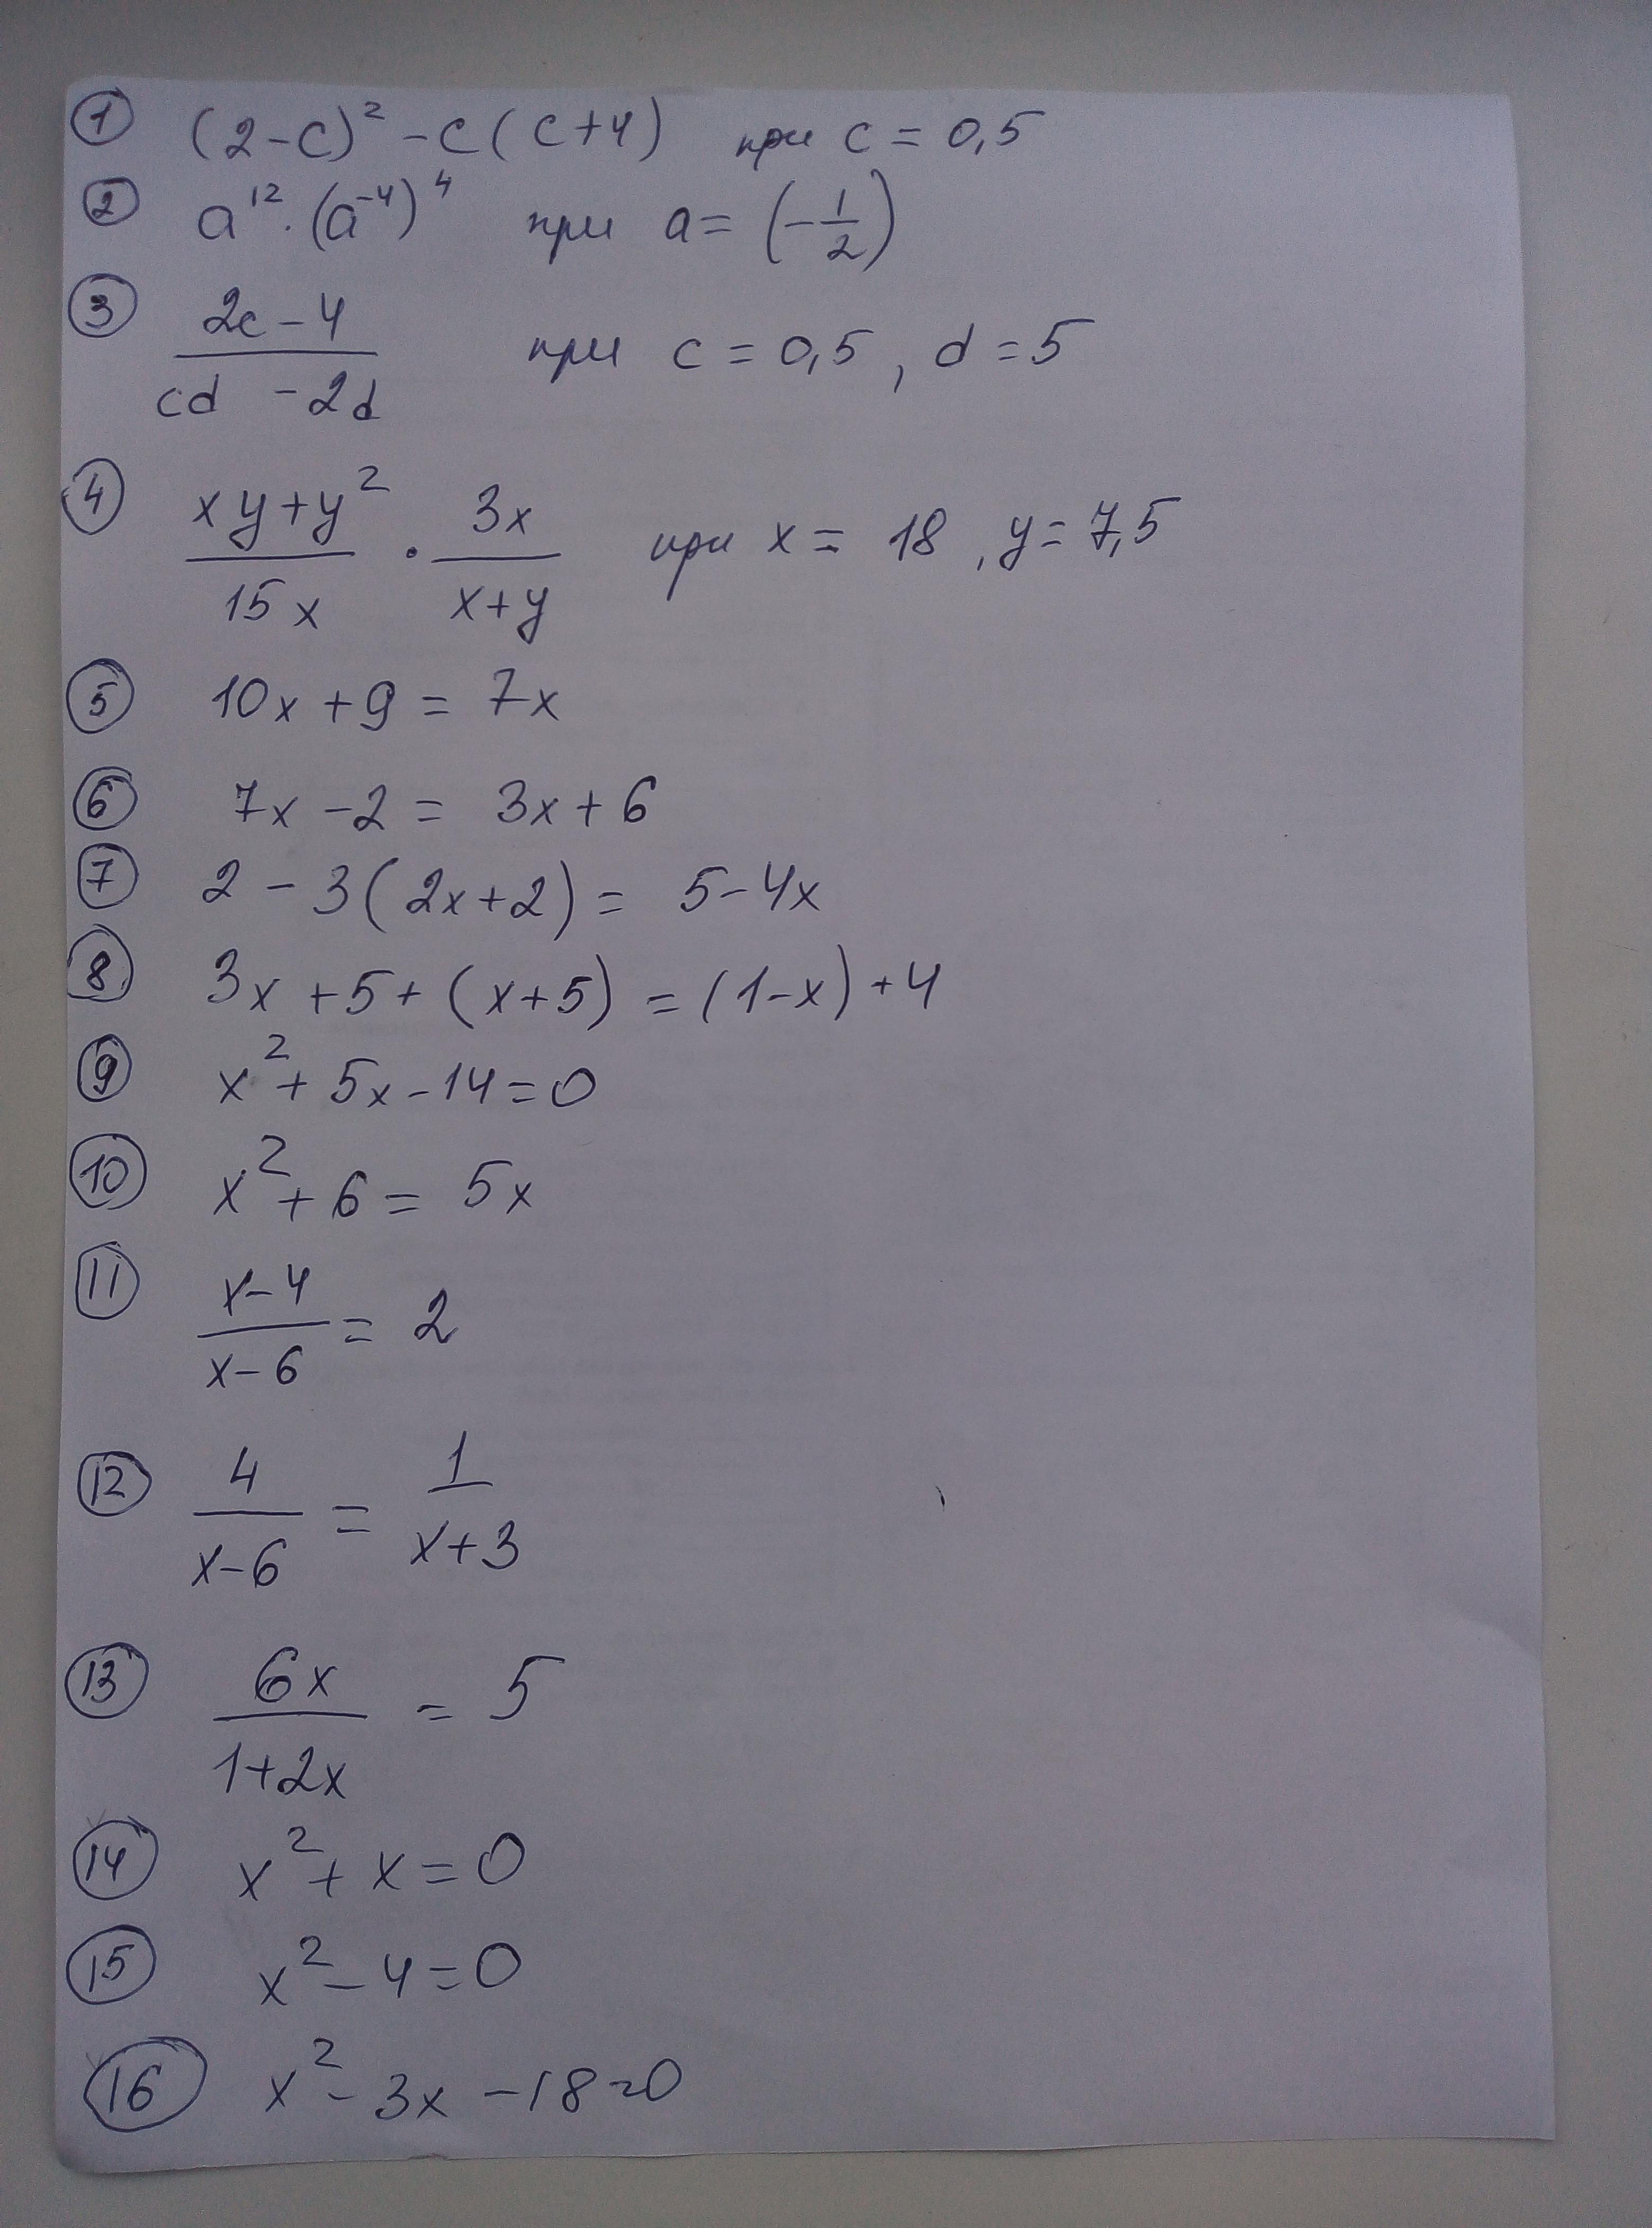 1 (2-c)² - c(c+4) при c = 0,5
2 a¹² · (a⁻⁴)⁴ при a = (-1/2)
3 2c - 4 / cd - 2d при c = 0,5, d = 5
4 xy+y² / 15x · 3x / x+y при x = 18, y = 7,5
5 10x + 9 = 7x
6 7x - 2 = 3x + 6
7 2 - 3(2x+2) = 5 - 4x
8 3x + 5 + (x+5) = (1-x) + 4
9 x² + 5x - 14 = 0
10 x² + 6 = 5x
11 x-4 / x-6 = 2
12 4 / x-6 = 1 / x+3
13 6x / 1+2x = 5
14 x² + x = 0
15 x² - 4 = 0
16 x² - 3x - 18 = 0